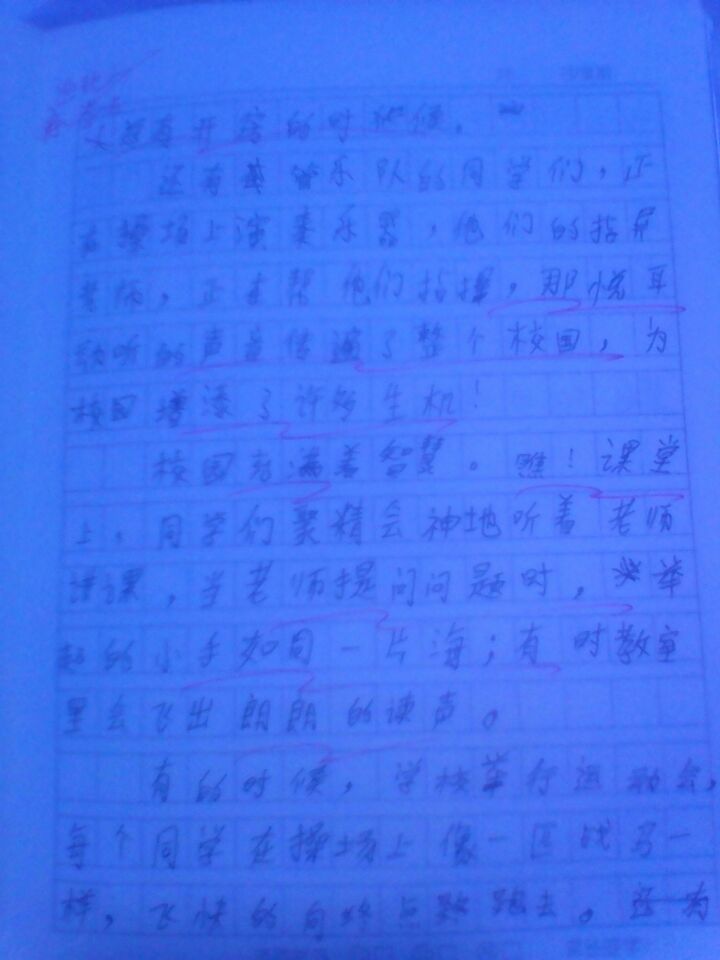 有开房的时候。
还有管乐队的同学们，正
在操场上演奏乐器，他们的指挥
老师，正在帮他们指挥，那悦耳
动听的声音传遍了整个校园，为
校园增添了许多生机！
校园充满着智慧。瞧！课堂
上，同学们聚精会神地听着老师
讲课，当老师提问问题时，举
起的小手如同一片海；有时教室
里会飞出朗朗的读声。
有的时候，学校举行运动会，
每个同学在操场上像一匹战马一
样，飞快的向终点跑去。为